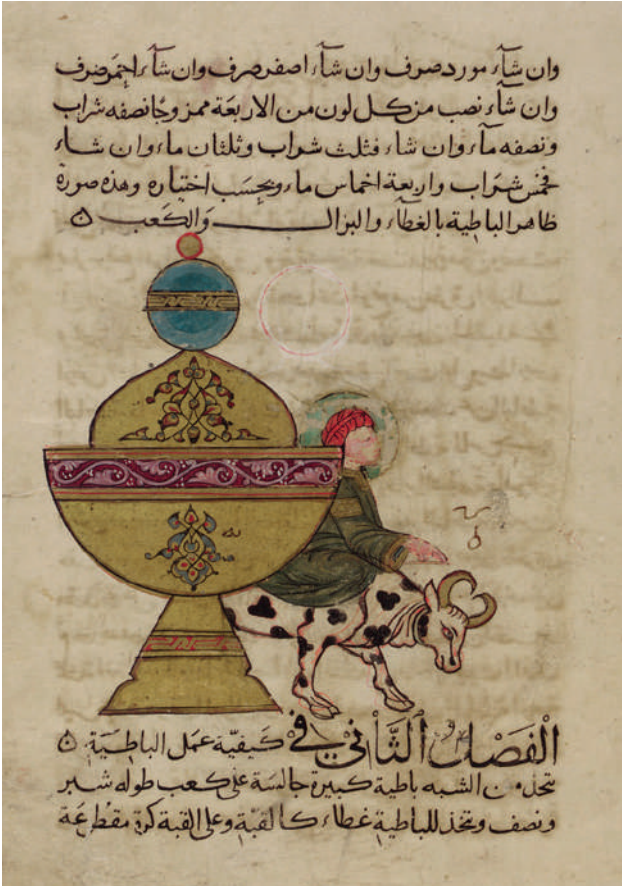 وان شآء مورد صرف وان شآء اصفر صرف وان شآء احمر صرف
وان شآء نصب من كل لون من الاربعة ممزوجًا نصفه شراب
ونصفه مآء وان شاء فثلث شراب وثلثان ماء وان شاء
فخمس شراب واربعة اخماس ماء وبحسب اختياره وهذه صورة
ظاهر الباطية بالغطآء والبزال والكعب
الفصل الثاني في كيفية عمل الباطية
تتخذ من الشبه باطية كبيرة جالسة على كعب طوله شبر
ونصف وتتخذ للباطية غطاء كالقبة وعلى القبة كرة مقطعة